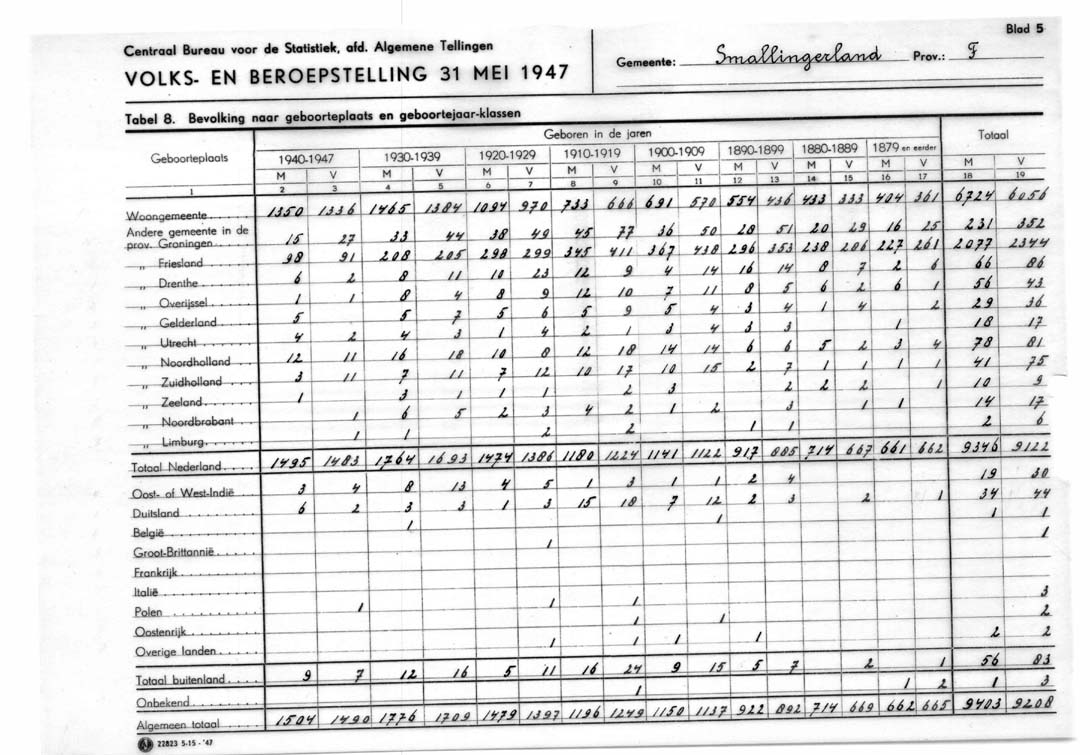 Blad 5
Centraal Bureau voor de Statistiek, afd. Algemene Tellingen
VOLKS- EN BEROEPSTELLING 31 MEI 1947
Gemeente: Smallingerland Prov.: F
Tabel 8. Bevolking naar geboorteplaats en geboortejaar-klassen
Geboorteplaats Geboren in de jaren Totaal
1940-1947 1930-1939 1920-1929 1910-1919 1900-1909 1890-1899 1880-1889 1879 en eerder
M V M V M V M V M V M V M V M V M V
1 2 3 4 5 6 7 8 9 10 11 12 13 14 15 16 17 18 19
Woongemeente 1350 1336 1465 1384 1094 970 733 666 691 570 554 436 433 333 404 361 6724 6056
Andere gemeente in de
prov. Groningen 15 27 33 44 38 49 45 77 36 50 28 51 20 29 16 25 231 352
„ Friesland 98 91 208 205 298 299 345 411 367 438 296 353 238 206 227 261 2077 2344
„ Drenthe 6 2 8 11 10 23 12 9 4 14 16 14 8 7 2 6 66 86
„ Overijssel 1 1 8 4 8 9 12 10 7 11 8 5 6 2 6 1 56 43
„ Gelderland 5 5 7 5 6 5 9 5 4 3 4 1 4 2 29 36
„ Utrecht 4 2 4 3 1 4 2 1 3 4 3 3 1 18 17
„ Noordholland 12 11 16 18 10 8 12 18 14 14 6 6 5 2 3 4 78 81
„ Zuidholland 3 11 7 11 7 12 10 17 10 15 2 7 1 1 1 1 41 75
„ Zeeland 1 3 1 1 1 2 3 2 2 2 1 10 9
„ Noordbrabant 1 6 5 2 3 4 2 1 2 3 1 1 14 17
„ Limburg 1 1 2 2 1 1 2 6
Totaal Nederland 1495 1483 1764 1693 1474 1386 1180 1224 1141 1122 917 885 714 667 661 662 9346 9122
Oost- of West-Indië 3 4 8 13 4 5 1 3 1 1 2 4 19 30
Duitsland 6 2 3 3 1 3 15 18 7 12 2 3 2 1 34 44
België 1 1 1 1
Groot-Brittannië 1 1
Frankrijk
Italië
Polen 1 1 1 3
Oostenrijk 1 1 2
Overige landen 1 1 1 1 2 2
Totaal buitenland 9 7 12 16 5 11 16 24 9 15 5 7 2 1 56 83
Onbekend 1 1 2 1 3
Algemeen totaal 1504 1490 1776 1709 1479 1397 1196 1249 1150 1137 922 892 714 669 662 665 9403 9208
22823 5-15-'47